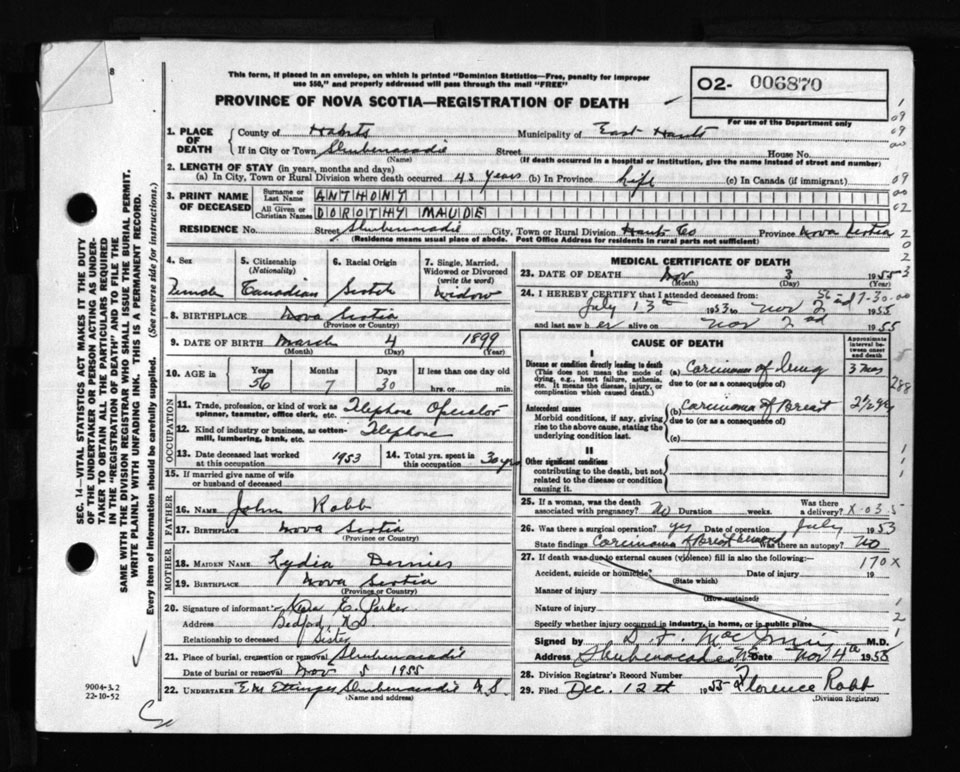 8
This form, if placed in an envelope, on which is printed "Dominion Statistics—Free, penalty for improper
use $50," and properly addressed will pass through the mail "FREE"
O2- 006870
For use of the Department only
PROVINCE OF NOVA SCOTIA—REGISTRATION OF DEATH
1. PLACE OF DEATH { County of Hants Municipality of East Hants
If in City or Town Shubenacadie Street House No.
(Name) (If death occurred in a hospital or institution, give the name instead of street and number)
2. LENGTH OF STAY (in years, months and days)
(a) In City, Town or Rural Division where death occurred 43 years (b) In Province Life (c) In Canada (if immigrant)
3. PRINT NAME OF DECEASED { Surname or Last Name ANTHONY
All Given or Christian Names DOROTHY MAUDE
RESIDENCE No. Street Shubenacadie City, Town or Rural Division Hants Co Province Nova Scotia
(Residence means usual place of abode. Post Office Address for residents in rural parts not sufficient)
4. Sex 5. Citizenship (Nationality) 6. Racial Origin 7. Single, Married, Widowed or Divorced (write the word)
Canadian Scotch Widow
8. BIRTHPLACE Nova Scotia
(Province or Country)
9. DATE OF BIRTH March 4 1899
(Month) (Day) (Year)
10. AGE in Years Months Days If less than one day
56 7 30 hrs. or min.
OCCUPATION
11. Trade, profession, or kind of work as spinner, teamster, office clerk, etc. Telephone Operator
12. Kind of industry or business, as cotton-mill, lumbering, bank, etc. Telephone
13. Date deceased last worked at this occupation 1953 14. Total yrs. spent in this occupation 30 yrs
15. If married give name of wife or husband of deceased
FATHER
16. Name John Robb
17. Birthplace Nova Scotia
(Province or Country)
MOTHER
18. Maiden Name Lydia
19. Birthplace Nova Scotia
(Province or Country)
20. Signature of informant E. Parker
Address Bedford NS
Relationship to deceased Sister
21. Place of burial, cremation or removal Shubenacadie
Date of burial or removal Nov 5 1955
22. UNDERTAKER E M Ettinger Shubenacadie N.S.
(Name and address)
MEDICAL CERTIFICATE OF DEATH
23. DATE OF DEATH Nov 3 1955
(Month) (Day) (Year)
24. I HEREBY CERTIFY that I attended deceased from:
July 13th 1953 to Nov 2 1955
and last saw her alive on Nov 2nd 1955
CAUSE OF DEATH
Approximate interval between onset and death
I
Disease or condition directly leading to death
(This does not mean the mode of dying, e.g., heart failure, asthenia, etc. It means the disease, injury, or complication which caused death.)
(a) Carcinoma of Lung 3 mos
due to (or as a consequence of)
Antecedent causes
Morbid conditions, if any, giving rise to the above cause, stating the underlying condition last.
(b) Carcinoma of Breast 2 1/2 yrs
due to (or as a consequence of)
(c)
II
Other significant conditions
contributing to the death, but not related to the disease or condition causing it.
25. If a woman, was the death associated with pregnancy? No Duration weeks. Was there a delivery?
26. Was there surgical operation? yes Date of operation July 1953
State findings Carcinoma of Breast Was there an autopsy? No
27. If death was due to external causes (violence) fill in also the following:
170X
Accident, suicide or homicide? Date of injury 19
(State which)
Manner of injury
(How sustained)
Nature of injury
Specify whether injury occurred in industry, in home, or in public place
Signed by M.D.
Address Shubenacadie NS Date Nov 4th 1955
28. Division Registrar's Record Number
29. Filed Dec. 12th 1955 Florence Robb
(Division Registrar)
SEC. 14—VITAL STATISTICS ACT MAKES IT THE DUTY
OF THE UNDERTAKER OR PERSON ACTING AS UNDER-
TAKER TO OBTAIN ALL THE PARTICULARS REQUIRED
IN THE "REGISTRATION OF DEATH" AND TO FILE THE
SAME WITH THE DIVISION REGISTRAR WHO SHALL ISSUE THE BURIAL PERMIT.
WRITE PLAINLY WITH UNFADING INK. THIS IS A PERMANENT RECORD.
Every item of information should be carefully supplied. (See reverse side for instructions.)
9004-3.2
22-10-52